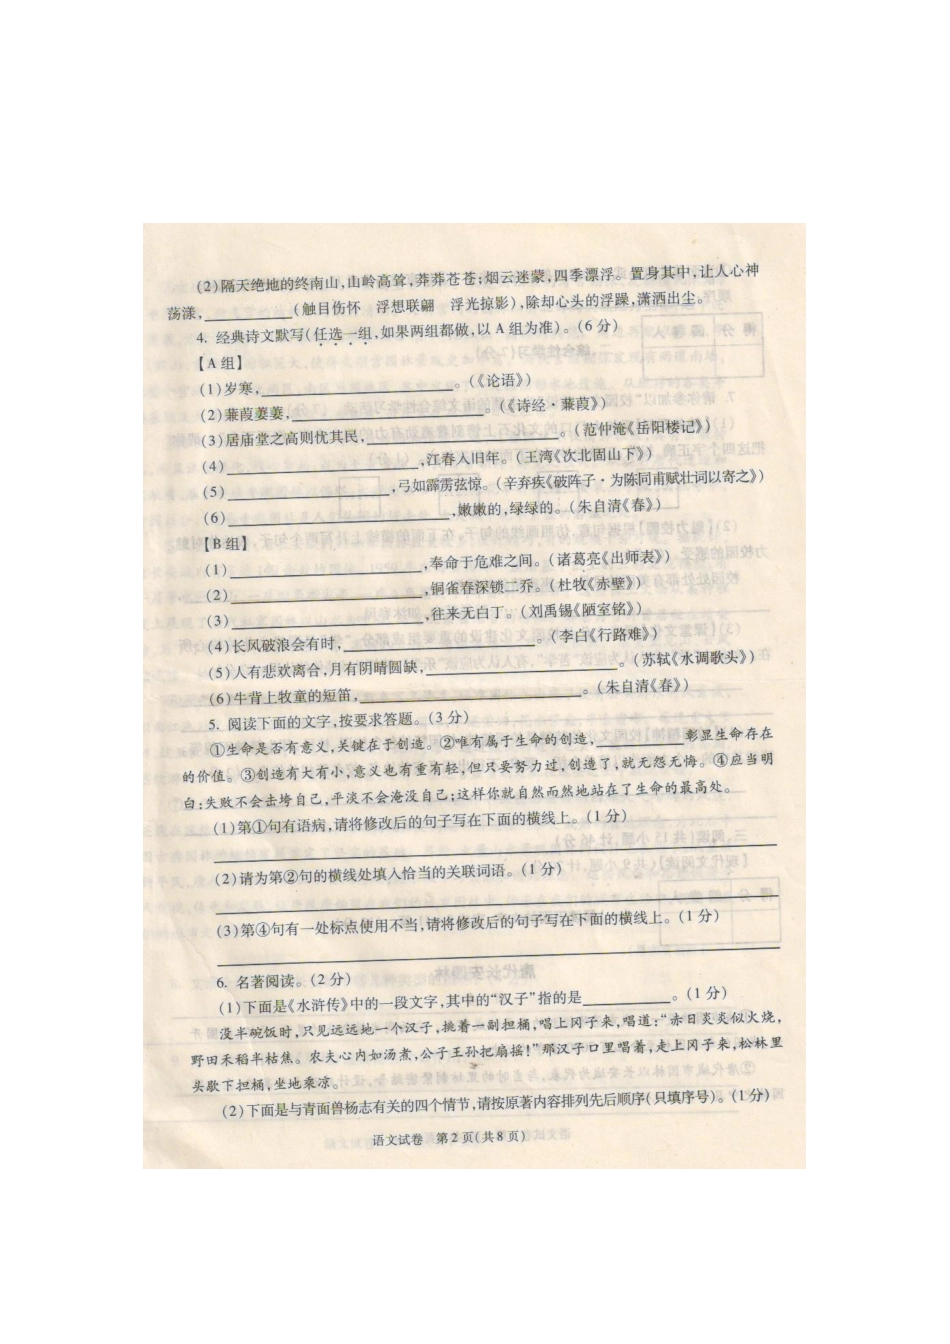 (2)隔天绝地的终南山,山岭高耸,莽莽苍苍;烟云迷蒙,四季漂浮。置身其中,让人心神
荡漾,__________(触目伤怀 浮想联翩 浮光掠影),除却心头的浮躁,潇洒出尘。
4. 经典诗文默写(任选一组,如果两组都做,以A组为准)。(6分)
【A组】
(1)岁寒,____________________。(《论语》)
(2)蒹葭萋萋,____________________。(《诗经·蒹葭》)
(3)居庙堂之高则忧其民,____________________。(范仲淹《岳阳楼记》)
(4)____________________,江春入旧年。(王湾《次北固山下》)
(5)____________________,弓如霹雳弦惊。(辛弃疾《破阵子·为陈同甫赋壮词以寄之》)
(6)____________________,嫩嫩的,绿绿的。(朱自清《春》)
【B组】
(1)____________________,奉命于危难之间。(诸葛亮《出师表》)
(2)____________________,铜雀春深锁二乔。(杜牧《赤壁》)
(3)____________________,往来无白丁。(刘禹锡《陋室铭》)
(4)长风破浪会有时,____________________。(李白《行路难》)
(5)人有悲欢离合,月有阴晴圆缺,____________________。(苏轼《水调歌头》)
(6)牛背上牧童的短笛,____________________。(朱自清《春》)
5. 阅读下面的文字,按要求答题。(3分)
①生命是否有意义,关键在于创造。②唯有属于生命的创造,__________彰显生命存在
的价值。③创造有大有小,意义也有重有轻,但只要努力过,创造了,就无怨无悔。④应当明
白:失败不会击垮自己,平淡不会淹没自己;这样你就自然而然地站在了生命的最高处。
(1)第①句有语病,请将修改后的句子写在下面的横线上。(1分)
(2)请为第②句的横线处填入恰当的关联词语。(1分)
(3)第④句有一处标点使用不当,请将修改后的句子写在下面的横线上。(1分)
6. 名著阅读。(2分)
(1)下面是《水浒传》中的一段文字,其中的“汉子”指的是__________。(1分)
没半碗饭时,只见远远地一个汉子,挑着一副担桶,唱上冈子来,唱道:“赤日炎炎似火烧,
野田禾稻半枯焦。农夫心内如汤煮,公子王孙把扇摇!”那汉子口里唱着,走上冈子来,松林里
头歇下担桶,坐地乘凉。
(2)下面是与青面兽杨志有关的四个情节,请按原著内容排列先后顺序(只填序号)。(1分)
语文试卷 第2页(共8页)